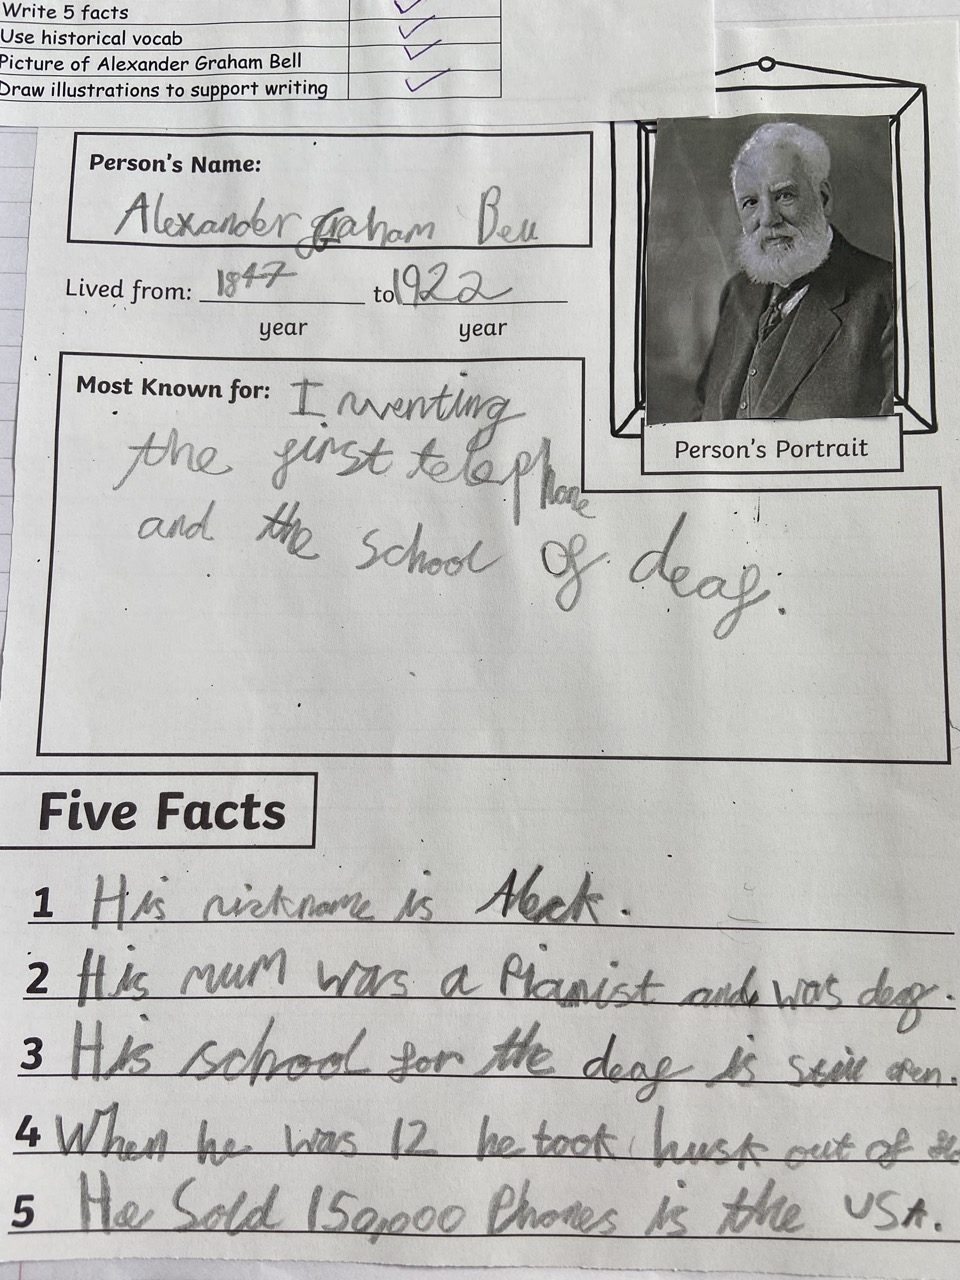 Write 5 facts
Use historical vocab
Picture of Alexander Graham Bell
Draw illustrations to support writing
Person's Name:
Alexander Graham Bell
Lived from: 1847 to 1922
year year
Most Known for: Inventing
the first telephone
and the school of deaf.
Person's Portrait
Five Facts
1 His nickname is Aleck.
2 His mum was a Pianist and was deaf.
3 His school for the deaf is still open.
4 When he was 12 he took husk out of
5 He Sold 150,000 Phones is the USA.